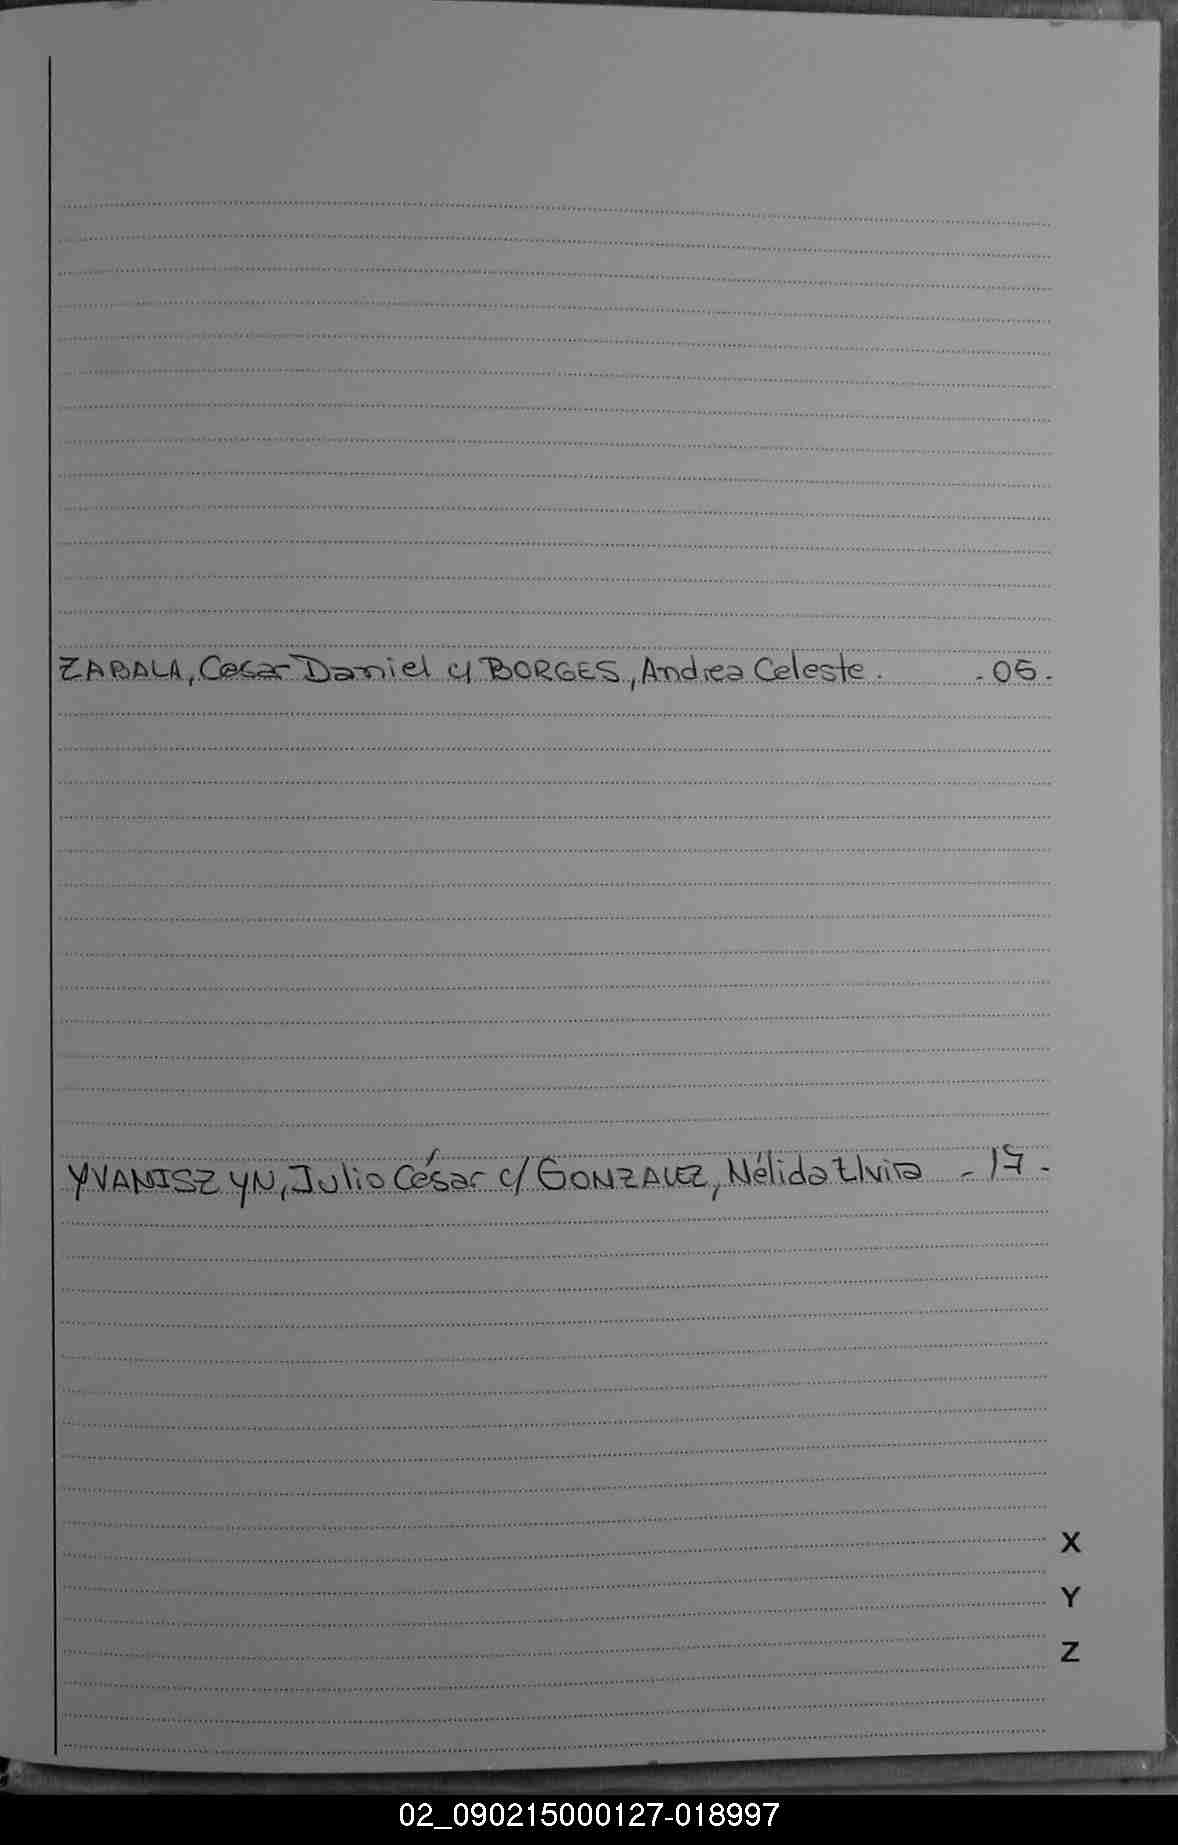 ZABALA, Cesar Daniel c/ BORGES, Andrea Celeste. - 05 -
YVANISZYN, Julio César c/ GONZALEZ, Nélida Elvira - 17 -
X
Y
Z
02_090215000127-018997